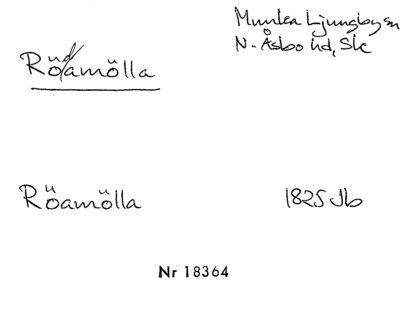 Munka Ljungby sn
N. Åsbo hd, Sk
Rödamölla
Röamölla
1825 Jb
Nr 18364